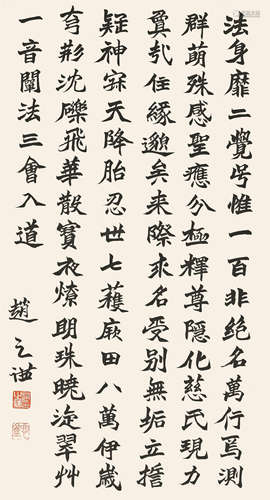 法身靡二覺号惟一百非絕名萬行焉測
群萌殊感聖應分極釋尊隱化慈氏現力
住緣邈矣来際求名受別無垢立誓
疑神天降胎忍世七穫厥田八萬伊歲
形沈礫飛華散寶夜燎明珠曉翠艸
一音闡法三會入道
趙之謙